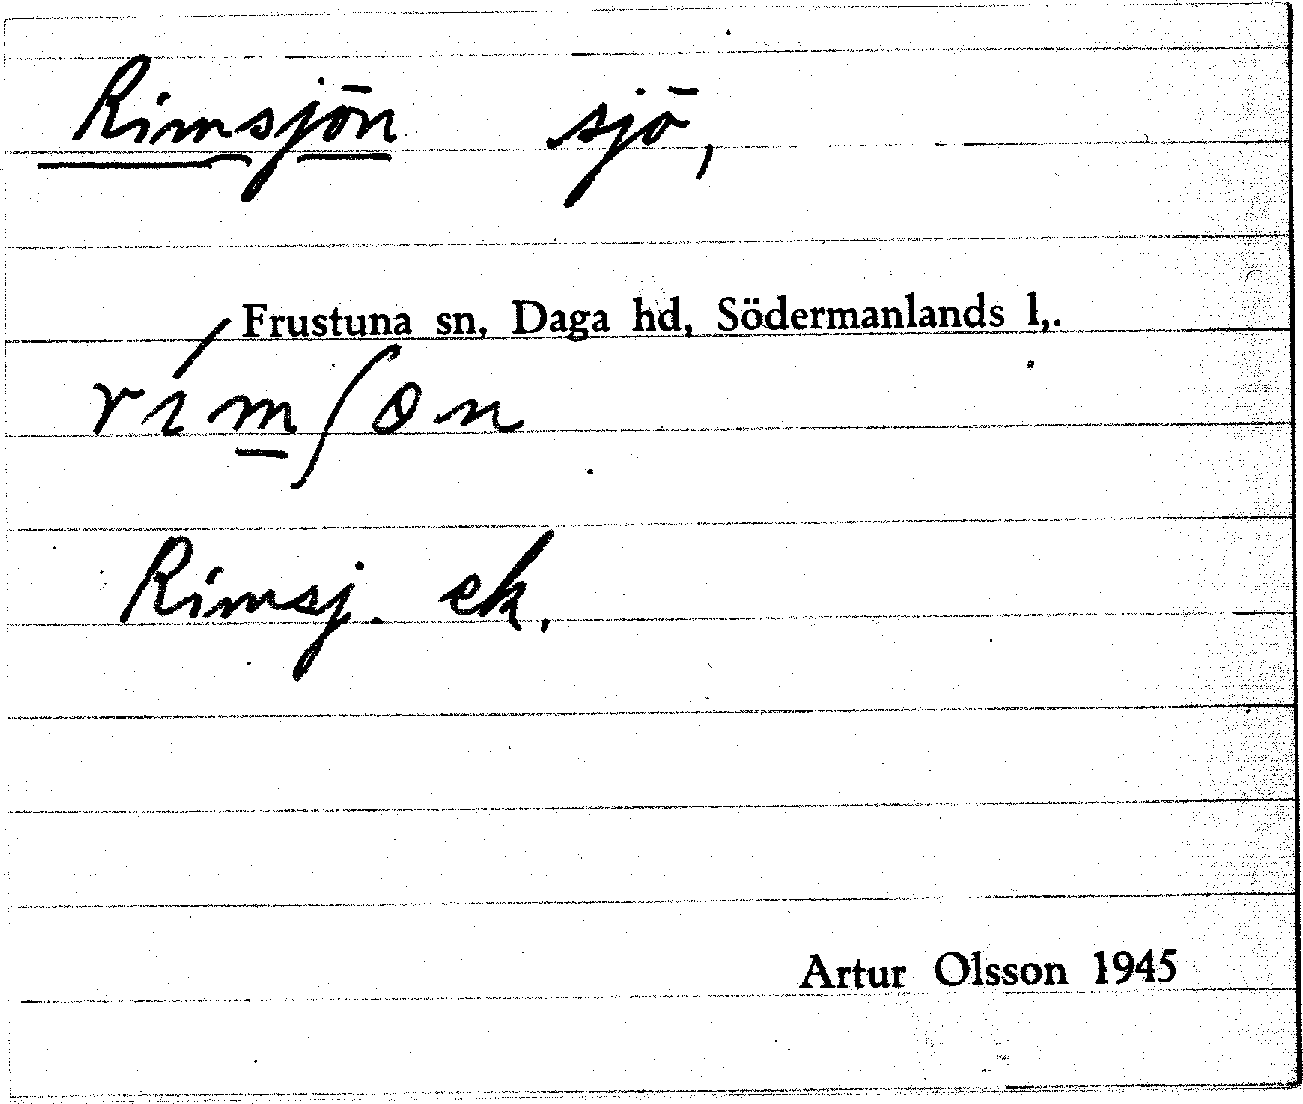 Rimsjön sjö,
Frustuna sn, Daga hd, Södermanlands l,.
rím̲ʃon
Rimsj. ek.
Artur Olsson 1945